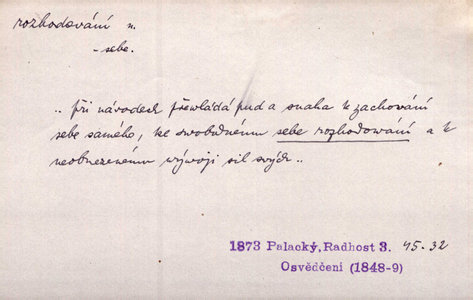 rozhodování n.
- sebe.
.. při národech převládá pud a snaha k zachování
sebe samého, ke swobodnému sebe rozhodowání a k
neobmezenému wýwoji sil swých ..
1873 Palacký, Radhost 3. 45.32
Osvědčení (1848-9)